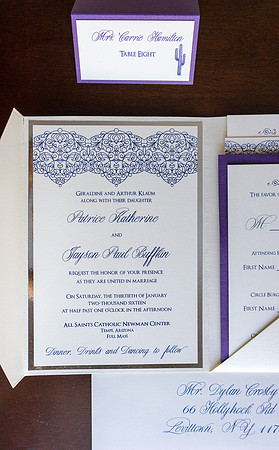 Mrs. Carrie Hamilton
Table Eight
Geraldine and Arthur Klaum
along with their daughter
Patrice Katherine
and
Jayson Paul Buffkin
request the honor of your presence
as they are united in marriage
On Saturday, the thirtieth of January
two thousand sixteen
at half past one o'clock in the afternoon
All Saints Catholic Newman Center
Tempe, Arizona
Full Mass
Dinner, Drinks and Dancing to follow
The favor
M
Attending
First Name
Circle
First Name
Mr. Dylan Crosby
66 Hollyhock
Levittown, N